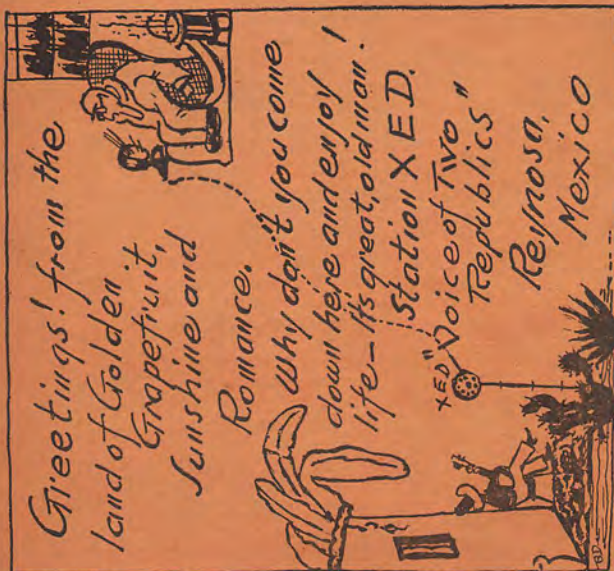 Greetings! from the
land of Golden
Grapefruit,
Sunshine and
Romance.
Why don't you come
down here and enjoy
life - Its great, old man!
Station XED.
"Voice of Two
Republics"
Reynosa,
Mexico
XED
BD